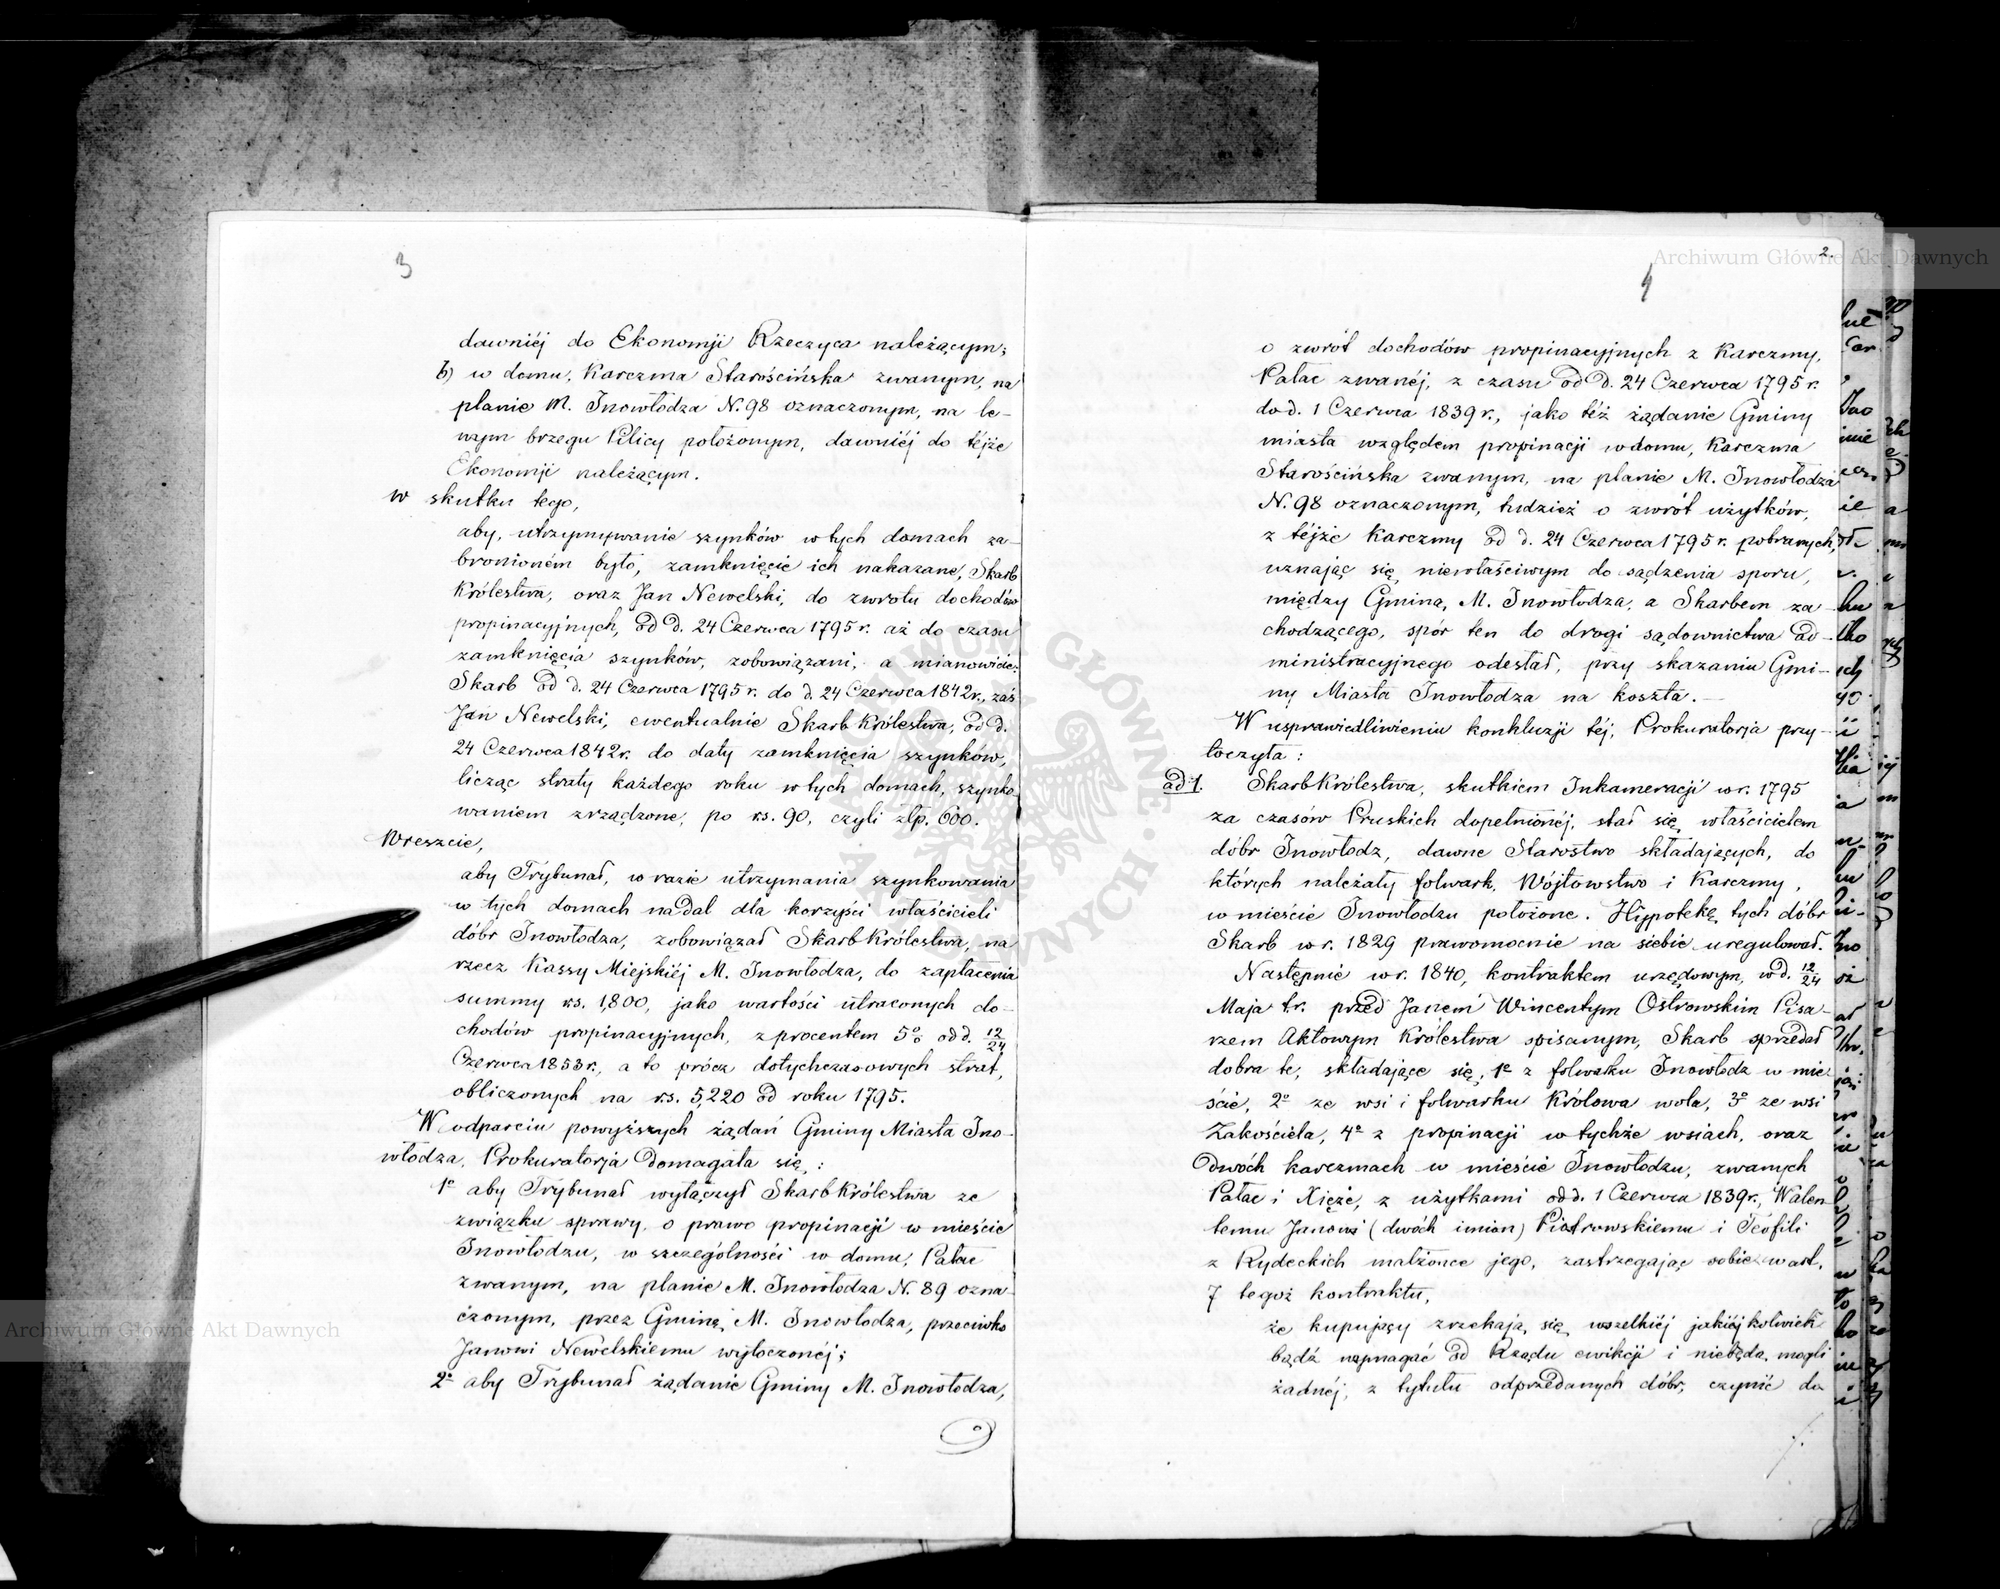 3
dawniéj do Ekonomji Rzeczyca należącym;
b) w domu, Karczma Starościńska zwanym, na
planie M. Inowłodza N. 98 oznaczonym, na le-
wym brzegu Pilicy położonym, dawniéj do téjże
Ekonomji należącym.
W skutku tego,
aby, utrzymywanie szynków w tych domach za-
bronioném było, zamknięcie ich nakazane, Skarb
Królestwa, oraz Jan Newelski, do zwrotu dochodów
propinacyjnych, od d. 24 Czerwca 1795 r. aż do czasu
zamknięcia szynków, zobowiązani, a mianowicie:
Skarb od d. 24 Czerwca 1795 r. do d. 24 Czerwca 1842 r., zaś
Jan Newelski, ewentualnie Skarb Królestwa, od d.
24 Czerwca 1842 r. do daty zamknięcia szynków,
licząc straty każdego roku w tych domach, szynko-
waniem zrządzone, po rs. 90, czyli złp. 600.
Wreszcie,
aby Trybunał, w razie utrzymania szynkowania
w tych domach nadal dla korzyści właścicieli
dóbr Inowłodza, zobowiązał Skarb Królestwa, na
rzecz Kassy Miejskiéj M. Inowłodza, do zapłacenia
summy rs. 1,800, jako wartości utraconych do-
chodów propinacyjnych, z procentem 5% od d. 12/24
Czerwca 1853 r., a to prócz dotychczasowych strat,
obliczonych na rs. 5,220 od roku 1795.
W odparciu powyższych żądań Gminy Miasta Ino-
włodza, Prokuratorja domagała się:
1º aby Trybunał wyłączył Skarb Królestwa ze
związku sprawy, o prawo propinacji w mieście
Inowłodzu, w szczególności w domu, Pałac
zwanym, na planie M. Inowłodza N. 89 ozna-
czonym, przez Gminę M. Inowłodza, przeciwko
Janowi Newelskiemu wytoczonéj;
2º aby Trybunał żądanie Gminy M. Inowłodza,
2.
4
o zwrót dochodów propinacyjnych z Karczmy,
Pałac zwanéj, z czasu od d. 24 Czerwca 1795 r.
do d. 1 Czerwca 1839 r., jako téż żądanie Gminy
miasta względem propinacji w domu, Karczma
Starościńska zwanym, na planie M. Inowłodza
N. 98 oznaczonym, tudzież o zwrót użytków,
z téjże Karczmy od d. 24 Czerwca 1795 r. pobranych,
uznając się niewłaściwym do sądzenia sporu,
między Gminą M. Inowłodza, a Skarbem za-
chodzącego, spór ten do drogi sądownictwa ad-
ministracyjnego odesłał, przy skazaniu Gmi-
ny Miasta Inowłodza na koszta.—
W usprawiedliwieniu konkluzji téj, Prokuratorja przy-
toczyła:
ad 1. Skarb Królestwa, skutkiem Inkameracji w r. 1795
za czasów Pruskich dopełnionéj, stał się właścicielem
dóbr Inowłodz, dawne Starostwo składających, do
których należały folwark, Wójtowstwo i Karczmy,
w mieście Inowłodzu położone. Hypotekę tych dóbr
Skarb w r. 1829 prawomocnie na siebie uregulował.
Następnie w r. 1840, kontraktem urzędowym, w d. 12/24
Maja t.r. przed Janem Wincentym Ostrowskim Pisa-
rzem Aktowym Królestwa spisanym, Skarb sprzedał
dobra te, składające się, 1º z folwarku Inowłodz w mie-
ście, 2º ze wsi i folwarku Królowa wola, 3º ze wsi
Zakościela, 4º z propinacji w tychże wsiach, oraz
dwóch karczmach w mieście Inowłodzu, zwanych
Pałac i Xięże, z użytkami od d. 1 Czerwca 1839 r., Walen-
temu Janowi (dwóch imion) Piotrowskiemu i Teofili
z Rydeckich małżonce jego, zastrzegając sobie w art.
7 tegoż kontraktu,
że kupujący zrzekają się wszelkiéj jakiéjkolwiek
bądź wymagać od Rządu ewikcji i niebędą mogli
żadnéj, z tytułu odprzedanych dóbr, czynić do
Archiwum Główne Akt Dawnych
Archiwum Główne Akt Dawnych